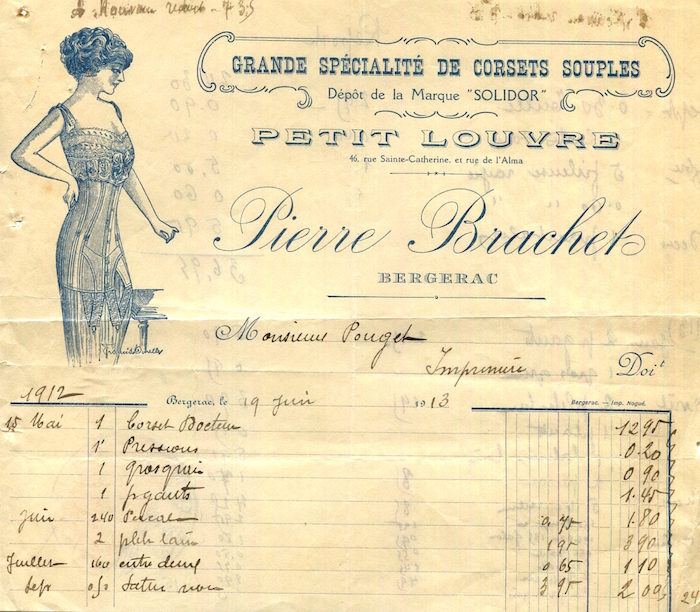 GRANDE SPÉCIALITÉ DE CORSETS SOUPLES
Dépôt de la Marque "SOLIDOR"
PETIT LOUVRE
46, rue Sainte-Catherine, et rue de l'Alma
Pierre Brachet
BERGERAC
Monsieur Pouget
Imprimerie Doit
1912 Bergerac, le 19 Juin 1913 Bergerac. — Imp. Nogué.
15 Mai 1 Corset Docteur 12 95
1 Pressions 0.20
1 grosgrain 0 90
1 p gants 1.45
Juin 240 Percale 0.75 1.80
2 plts lain 1 95 3 90
Juillet 160 entre deux 0 65 1 10
Sept 0,50 Satin noir 3 95 2 00